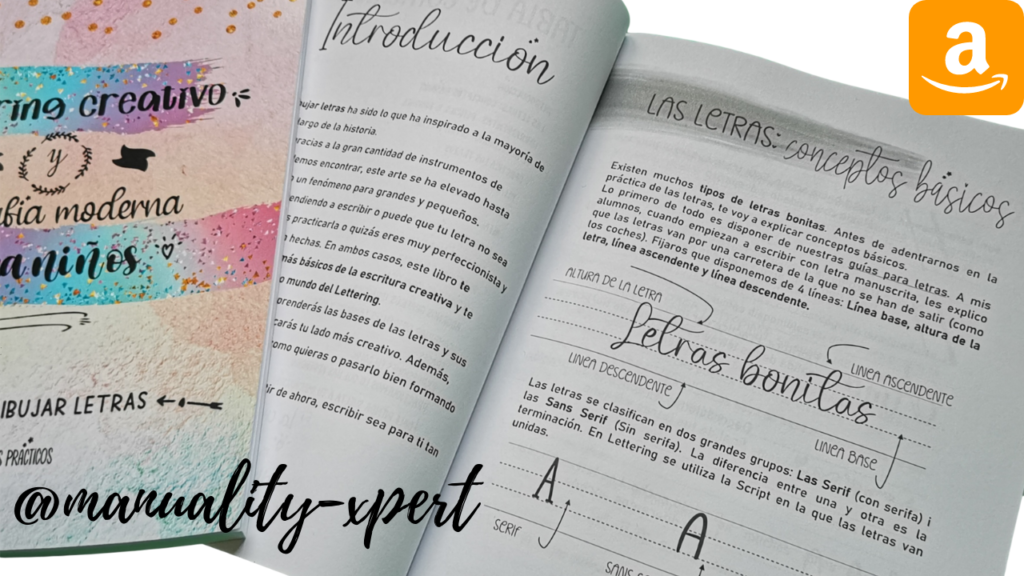 ring creativo
y
afia moderna
niños
DIBUJAR LETRAS
PRÁCTICOS
@manuality-xpert
Introducción
ujar letras ha sido lo que ha inspirado a la mayoría de
largo de la historia.
racias a la gran cantidad de instrumentos de
emos encontrar, este arte se ha elevado hasta
un fenómeno para grandes y pequeños.
endiendo a escribir o puede que tu letra no sea
practicarla o quizás eres muy perfeccionista y
hechas. En ambos casos, este libro te
más básicos de la escritura creativa y te
mundo del Lettering.
prenderás las bases de las letras y sus
carás tu lado más creativo. Además,
omo quieras o pasarlo bien formando
ir de ahora, escribir sea para ti tan
a
LAS LETRAS: conceptos básicos
Existen muchos tipos de letras bonitas. Antes de adentrarnos en la
práctica de las letras, te voy a explicar conceptos básicos.
Lo primero de todo es disponer de nuestras guías para letras. A mis
alumnos, cuando empiezan a escribir con letra manuscrita, les explico
que las letras van por una carretera de la que no se han de salir (como
los coches). Fijaros que disponemos de 4 líneas: Línea base, altura de la
letra, línea ascendente y línea descendente.
ALTURA DE LA LETRA
Letras bonitas
LINEA ASCENDENTE
LINEA DESCENDENTE
LINEA BASE
Las letras se clasifican en dos grandes grupos: Las Serif (con serifa) i
las Sans Serif (Sin serifa). La diferencia entre una y otra es la
terminación. En Lettering se utiliza la Script en la que las letras van
unidas.
A
A
SERIF
SANS